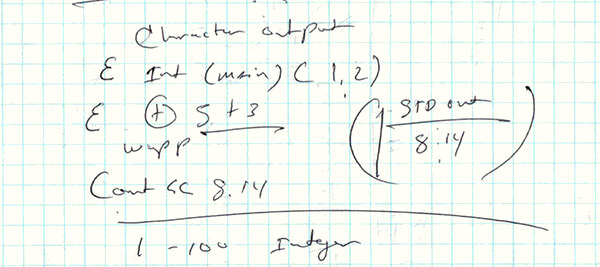 Character output
ε Int (main) ( 1, 2)
ε (+) 5 + 3
STD out
8.14
Cout << 8.14
1 - 100 Integer